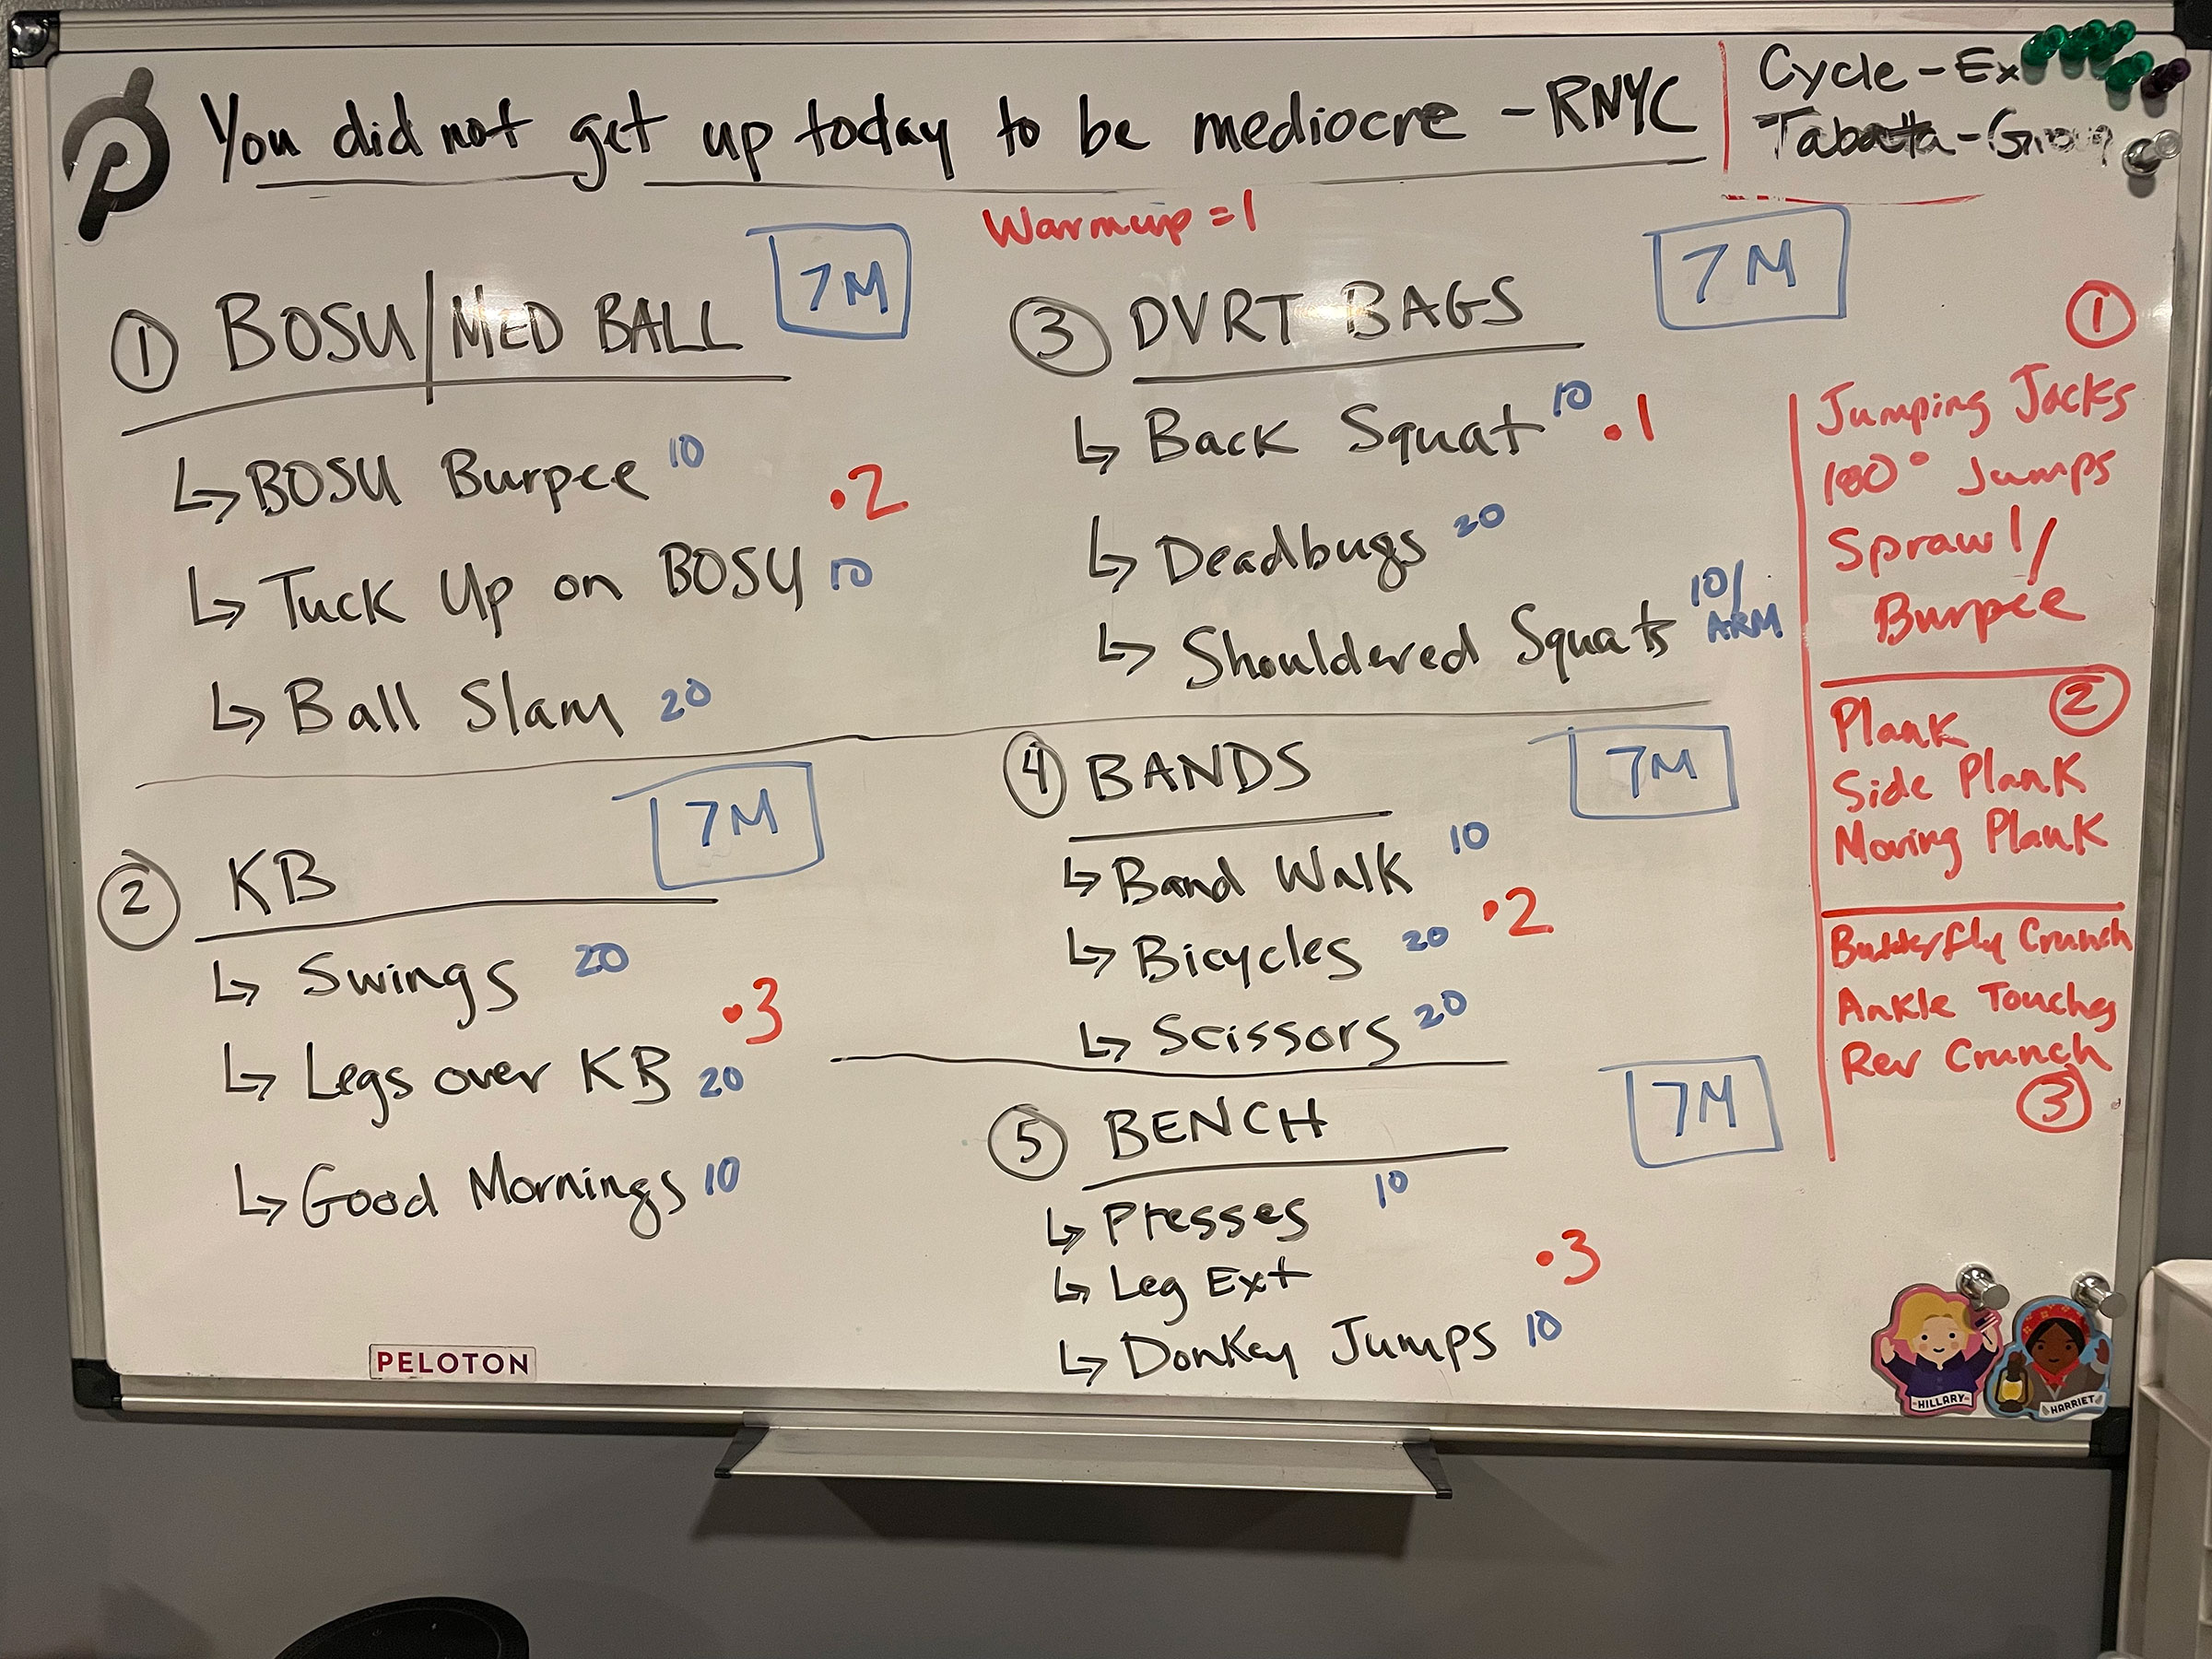 You did not get up today to be mediocre - RNYC
Cycle - Ex
Tabatta - Group
Warmup = 1
① BOSU/MED BALL 7M
↳ BOSU Burpee 10
•2
↳ Tuck Up on BOSU 10
↳ Ball Slam 20
② KB 7M
↳ Swings 20
•3
↳ Legs over KB 20
↳ Good Mornings 10
③ DVRT BAGS 7M
↳ Back Squat 10 •1
↳ Deadbugs 20
↳ Shouldered Squats 10/ARM
④ BANDS 7M
↳ Band Walk 10
↳ Bicycles 20 •2
↳ Scissors 20
⑤ BENCH 7M
↳ Presses 10
↳ Leg Ext •3
↳ Donkey Jumps 10
①
Jumping Jacks
180° Jumps
Sprawl/
Burpee
②
Plank
Side Plank
Moving Plank
Butterfly Crunch
Ankle Touches
Rev Crunch
③
PELOTON
HILLARY
HARRIET